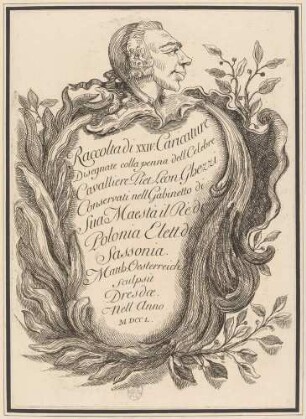 Raccolta di XXIV Caricature
Disegnate colla penna dell Celebre
Cavalliere Piet. Leon Ghezzi
Conservati nell Gabinetto di
Sua Maestà il Re di
Polonia Elett. di
Sassonia.
Matth. Oesterreich
sculpsit
Dresdæ.
Nell Anno
MDCCL.